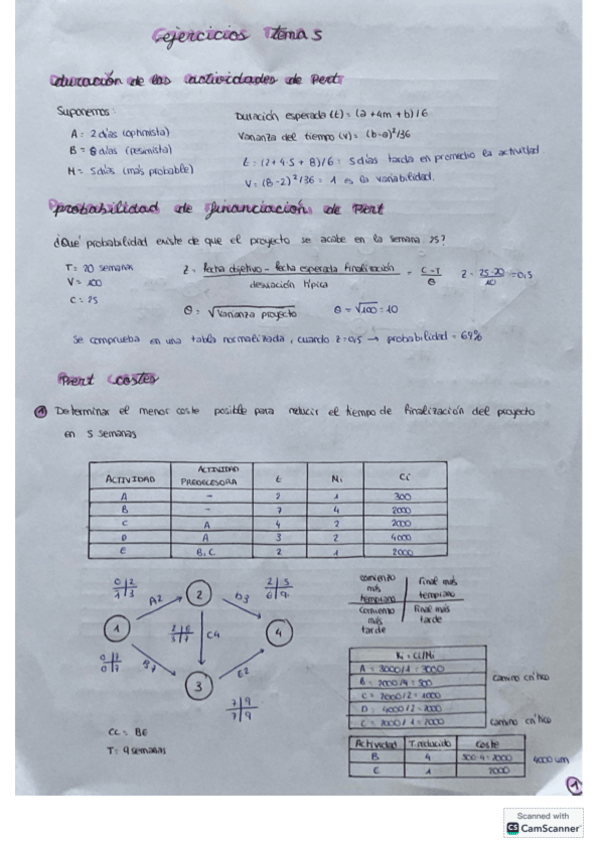 ejercicios Tema 5
duración de las actividades de Pert
Suponemos:
A = 2 días (optimista)
B = 8 días (pesimista)
M = 5 días (más probable)
Duración esperada (t) = (a + 4m + b) / 6
Varianza del tiempo (v) = (b-a)²/36
t = (2 + 4·5 + 8)/6 = 5 días tarda en promedio la actividad.
V = (8-2)²/36 = 1 es la variabilidad.
probabilidad de financiación de Pert
¿Qué probabilidad existe de que el proyecto se acabe en la semana 25?
T = 20 semanas
V = 100
C = 25
Z = fecha objetivo - fecha esperada finalización / desviación típica = C-T / θ
Z = 25-20 / 10 = 0,5
θ = √varianza proyecto
θ = √100 = 10
Se comprueba en una tabla normalizada, cuando z=0,5 → probabilidad = 69%
Pert costes
① Determinar el menor coste posible para reducir el tiempo de finalización del proyecto
en 5 semanas
ACTIVIDAD ACTIVIDAD PREDECESORA t Ni Ci
A - 2 1 300
B - 7 4 2000
C A 4 2 2000
D A 3 2 4000
E B, C 2 1 2000
0 2
1 3
2 5
6 9
A2
2
D3
1
C4
4
B7
E2
3
0
0 7
7 9
7 9
comienzo más temprano
final más temprano
comienzo más tarde
final más tarde
Ki = Ci/Ni
A = 3000/1 = 3000
B = 2000/4 = 500
C = 2000/2 = 1000
D = 4000/2 = 2000
E = 2000/1 = 2000
camino crítico
camino crítico
CC = BE
T = 9 semanas
Actividad T. reducido Coste
B 4 500·4 = 2000
E 1 2000
4000 um
1
Scanned with
CS CamScanner